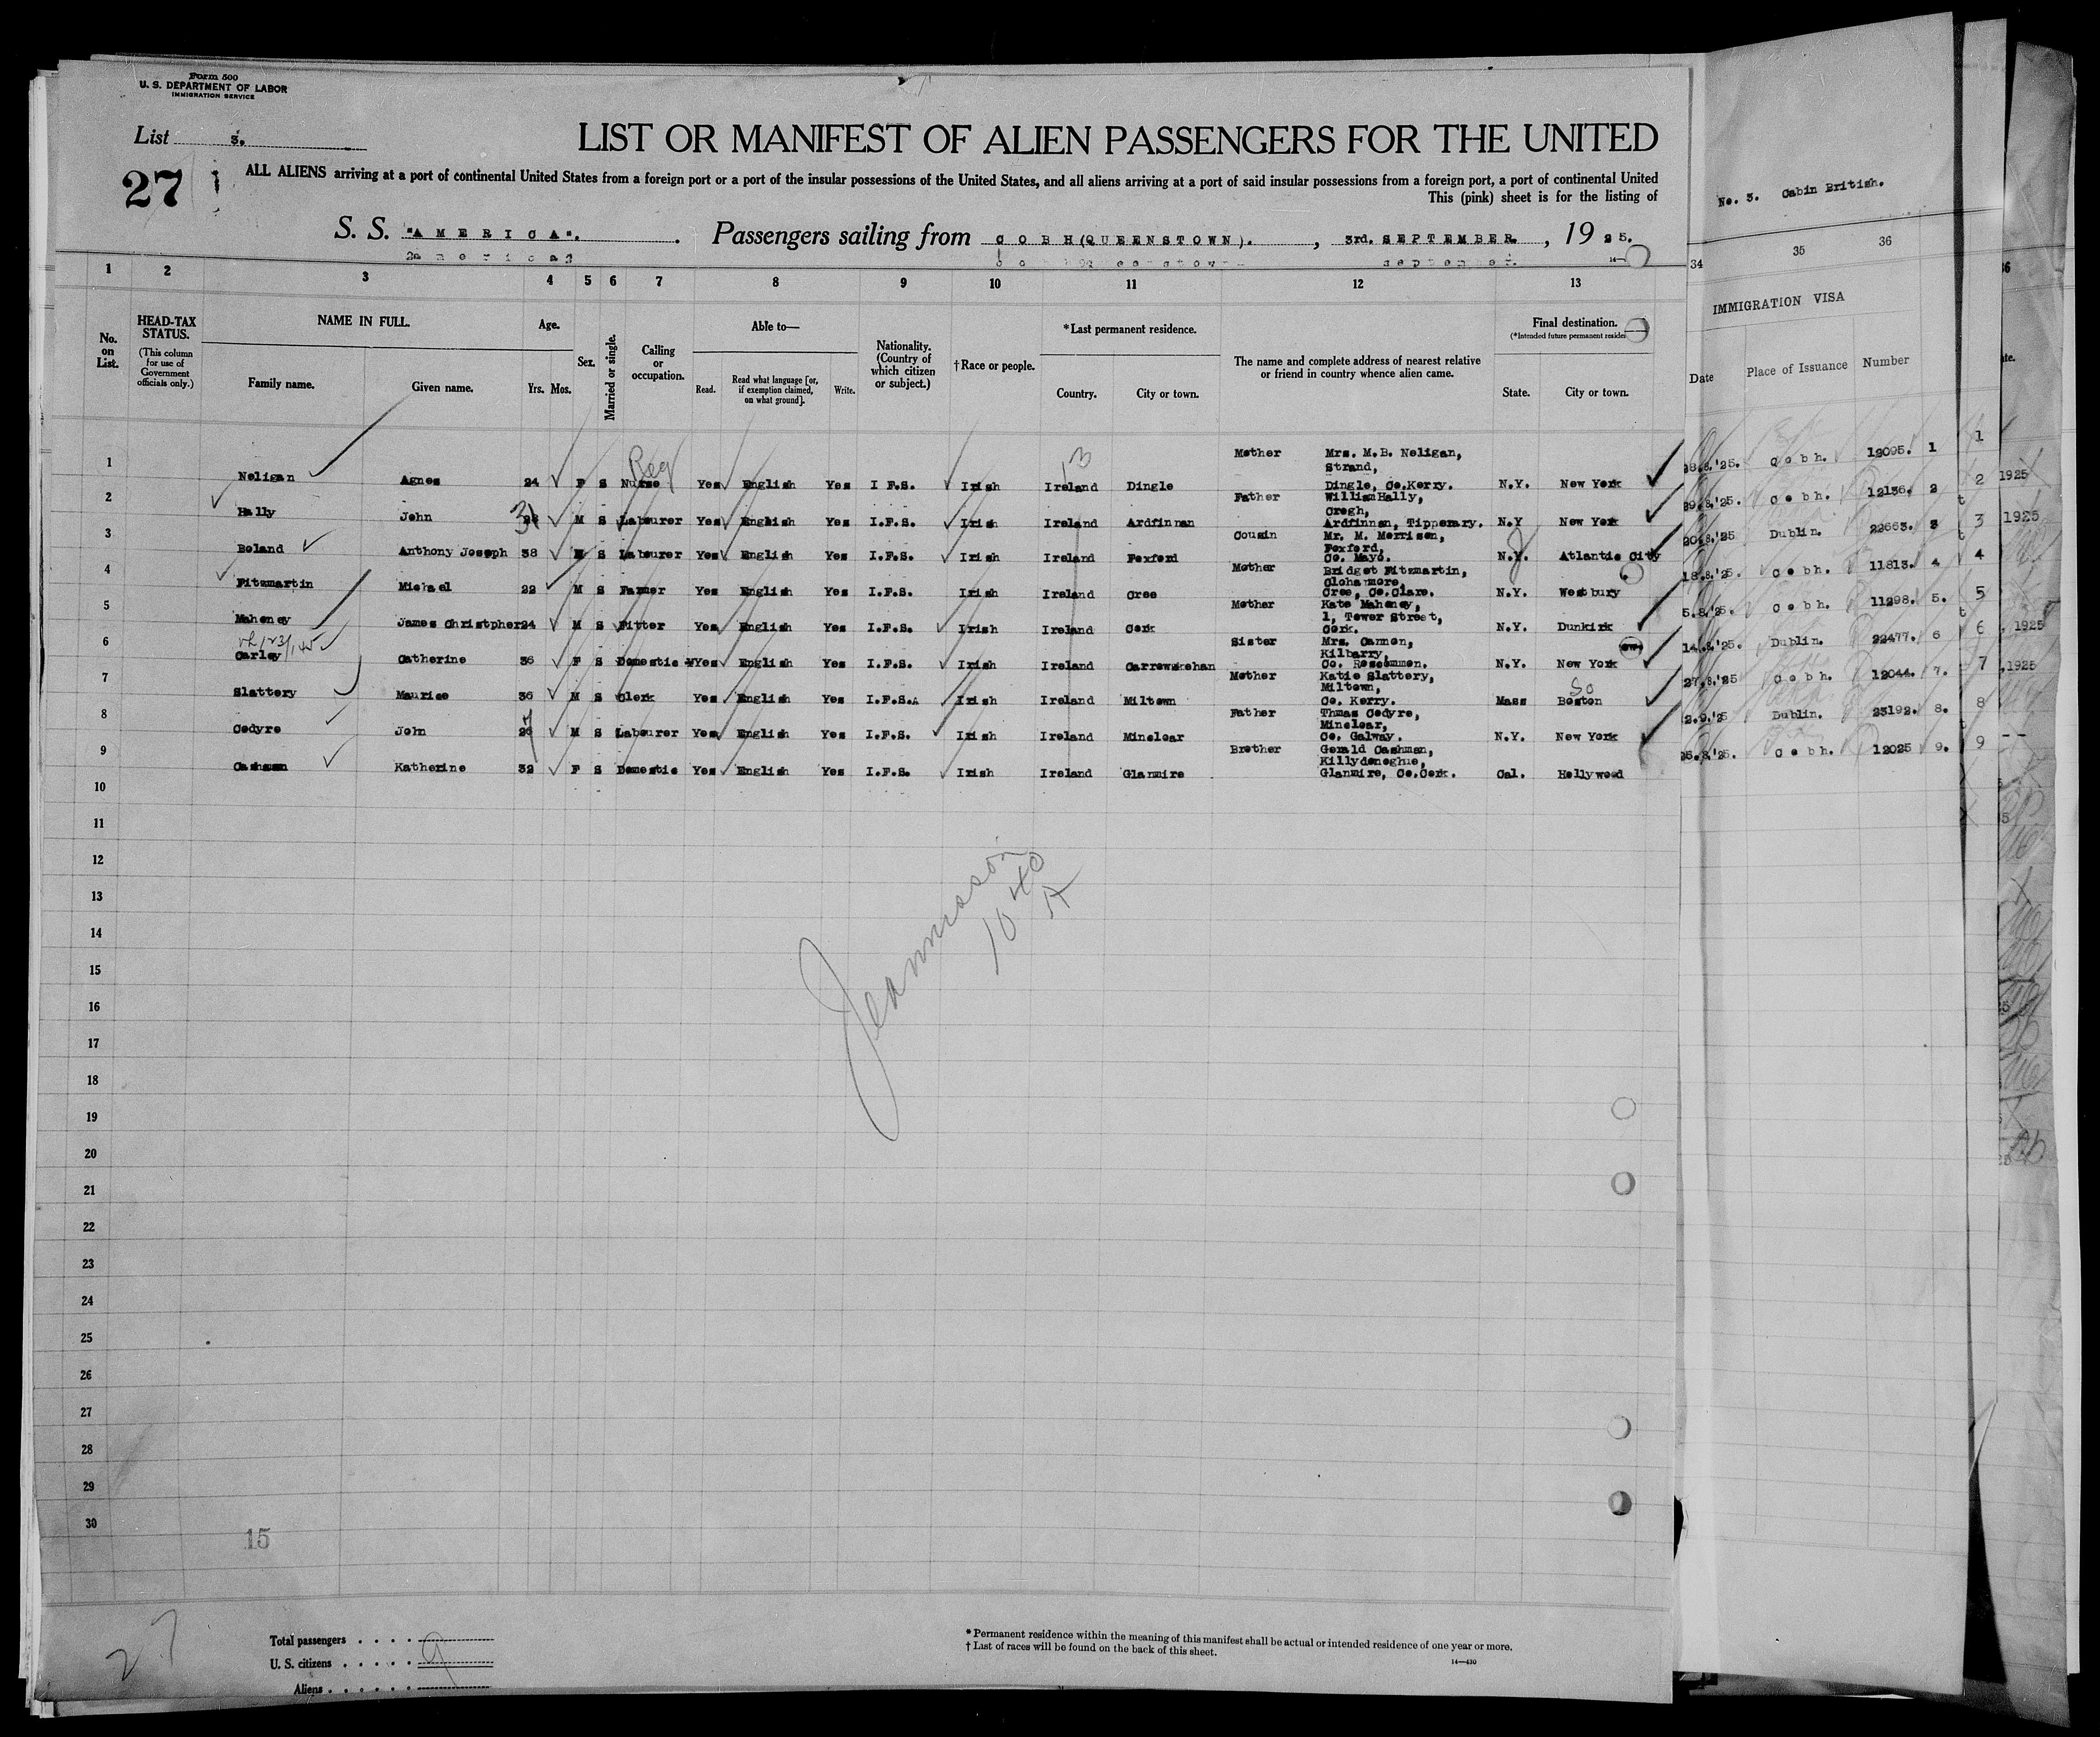 Form 500
U. S. DEPARTMENT OF LABOR
IMMIGRATION SERVICE
List 3.
27
LIST OR MANIFEST OF ALIEN PASSENGERS FOR THE UNITED
ALL ALIENS arriving at a port of continental United States from a foreign port or a port of the insular possessions of the United States, and all aliens arriving at a port of said insular possessions from a foreign port, a port of continental United
This (pink) sheet is for the listing of
S. S. "AMERICA". Passengers sailing from COBH(QUEENSTOWN)., 3rd. SEPTEMBER, 1925.
No. 3. Cabin British.
1 2 3 4 5 6 7 8 9 10 11 12 13 34 35 36
No. on List.
HEAD-TAX STATUS.
(This column for use of Government officials only.)
NAME IN FULL.
Family name. Given name.
Age.
Yrs. Mos.
Sex.
Married or single.
Calling or occupation.
Able to—
Read. Read what language [or, if exemption claimed, on what ground]. Write.
Nationality. (Country of which citizen or subject.)
†Race or people.
*Last permanent residence.
Country. City or town.
The name and complete address of nearest relative or friend in country whence alien came.
Final destination.
(*Intended future permanent residen
State. City or town.
IMMIGRATION VISA
Date Place of Issuance Number
1 Neligan Agnes 24 F S Nurse Yes English Yes I F.S. Irish Ireland Dingle Mother Mrs. M.B. Neligan, Strand, Dingle, Co.Kerry. N.Y. New York 28.8.'25. Cobh. 12095. 1
2 Hally John M S Labourer Yes English Yes I.F.S. Irish Ireland Ardfinnan Father William Hally, Cregh, Ardfinnan, Tipperary. N.Y New York 29.8.'25. Cobh. 12136. 2
3 Boland Anthony Joseph 38 M S Labourer Yes English Yes I.F.S. Irish Ireland Foxford Cousin Mr. M. Morrison, Foxford, Co. Mayo. N.Y. Atlantic City 20.8.'25 Dublin. 22663. 3
4 Fitzmartin Michael 22 M S Farmer Yes English Yes I.F.S. Irish Ireland Cree Mother Bridget Fitzmartin, Cree, Co.Clare. N.Y. Westbury 18.8.'25. Cobh. 11813. 4
5 Mahoney James Christpher 24 M S Fitter Yes English Yes I.F.S. Irish Ireland Cork Mother Kate Mahoney, 1, Tower Street, Cork. N.Y. Dunkirk 5.8.'25. Cobh. 11298. 5.
6 Carley Catherine 36 F S Domestic Yes English Yes I.F.S. Irish Ireland Carrowskehan Sister Mrs. Cannon, Kilbarry, Co. Roscommon. N.Y. New York 14.8.'25. Dublin. 22477. 6
7 Slattery Maurice 36 M S Clerk Yes English Yes I.F.S. Irish Ireland Miltown Mother Katie Slattery, Miltown, Co. Kerry. Mass So Boston 27.8.'25 Cobh. 12044. 7.
8 Cedyre John M S Labourer Yes English Yes I.F.S. Irish Ireland Minclear Father Thmas Cedyre, Minclear, Co. Galway. N.Y. New York 2.9.'25 Dublin. 23192. 8.
9 Cashman Katherine 32 F S Domestic Yes English Yes I.F.S. Irish Ireland Glanmire Brother Gerald Cashman, Killydonoghue, Glanmire, Co.Cork. Cal. Hollywood 26.8.'25. Cobh. 12025 9.
10
11
12
13
14
15
16
17
18
19
20
21
22
23
24
25
26
27
28
29
30
15
27
Total passengers . . . .
U. S. citizens . . . . . 9
Aliens . . . . . .
* Permanent residence within the meaning of this manifest shall be actual or intended residence of one year or more.
† List of races will be found on the back of this sheet.
14—430